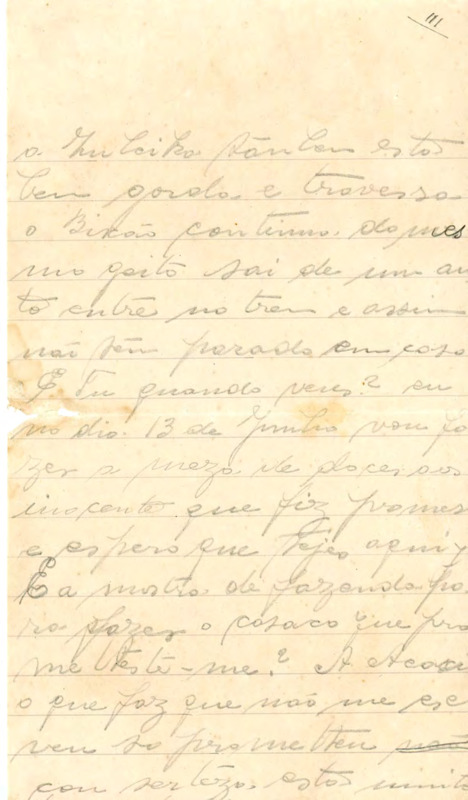 III
a Zuleika tânben está
ben gorda e travessa
o Bixão continua do mes
mo geito sai de um au
to entre no tren e assin
não tên parada en casa
E Tu quando vens? eu
no dia 13 de Junho vou fa
zer a meza de doces aos
inocente que fiz promes
e espero que aqui
E a mostra de fazenda pa
ra fazer o casaco que pro
meteste-me? A
o que faz que não me esc
veu so prometteu não
con sertêza está muit